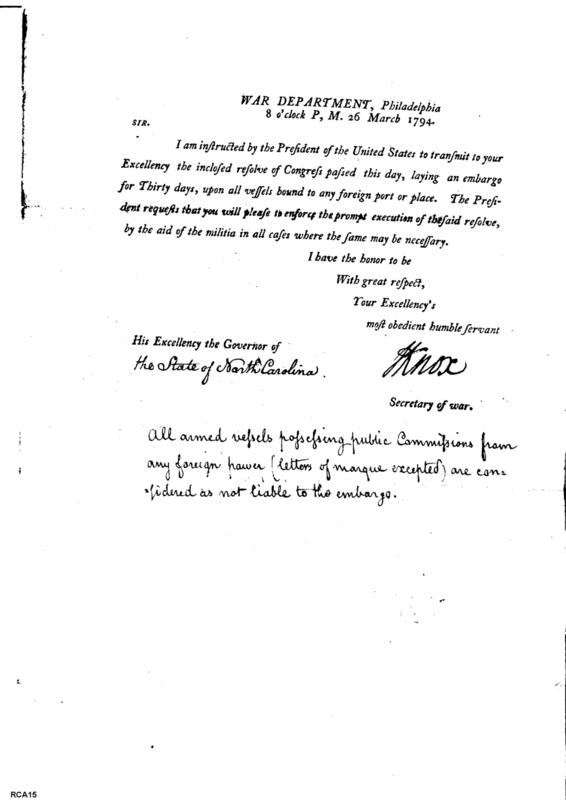 WAR DEPARTMENT, Philadelphia
8 o'clock P, M. 26 March 1794.
SIR.
I am inſtructed by the Preſident of the United States to tranſmit to your
Excellency the incloſed reſolve of Congreſs paſſed this day, laying an embargo
for Thirty days, upon all veſſels bound to any foreign port or place. The Preſi-
dent requeſts that you will pleaſe to enforce the prompt execution of the ſaid reſolve,
by the aid of the militia in all caſes where the ſame may be neceſſary.
I have the honor to be
With great reſpect,
Your Excellency's
moſt obedient humble ſervant
His Excellency the Governor of
the State of North Carolina.
HKnox
Secretary of war.
All armed veſsels poſseſsing public Commiſsions from
any foreign power (letters of marque excepted) are con=
=ſidered as not liable to the embargo.
RCA15